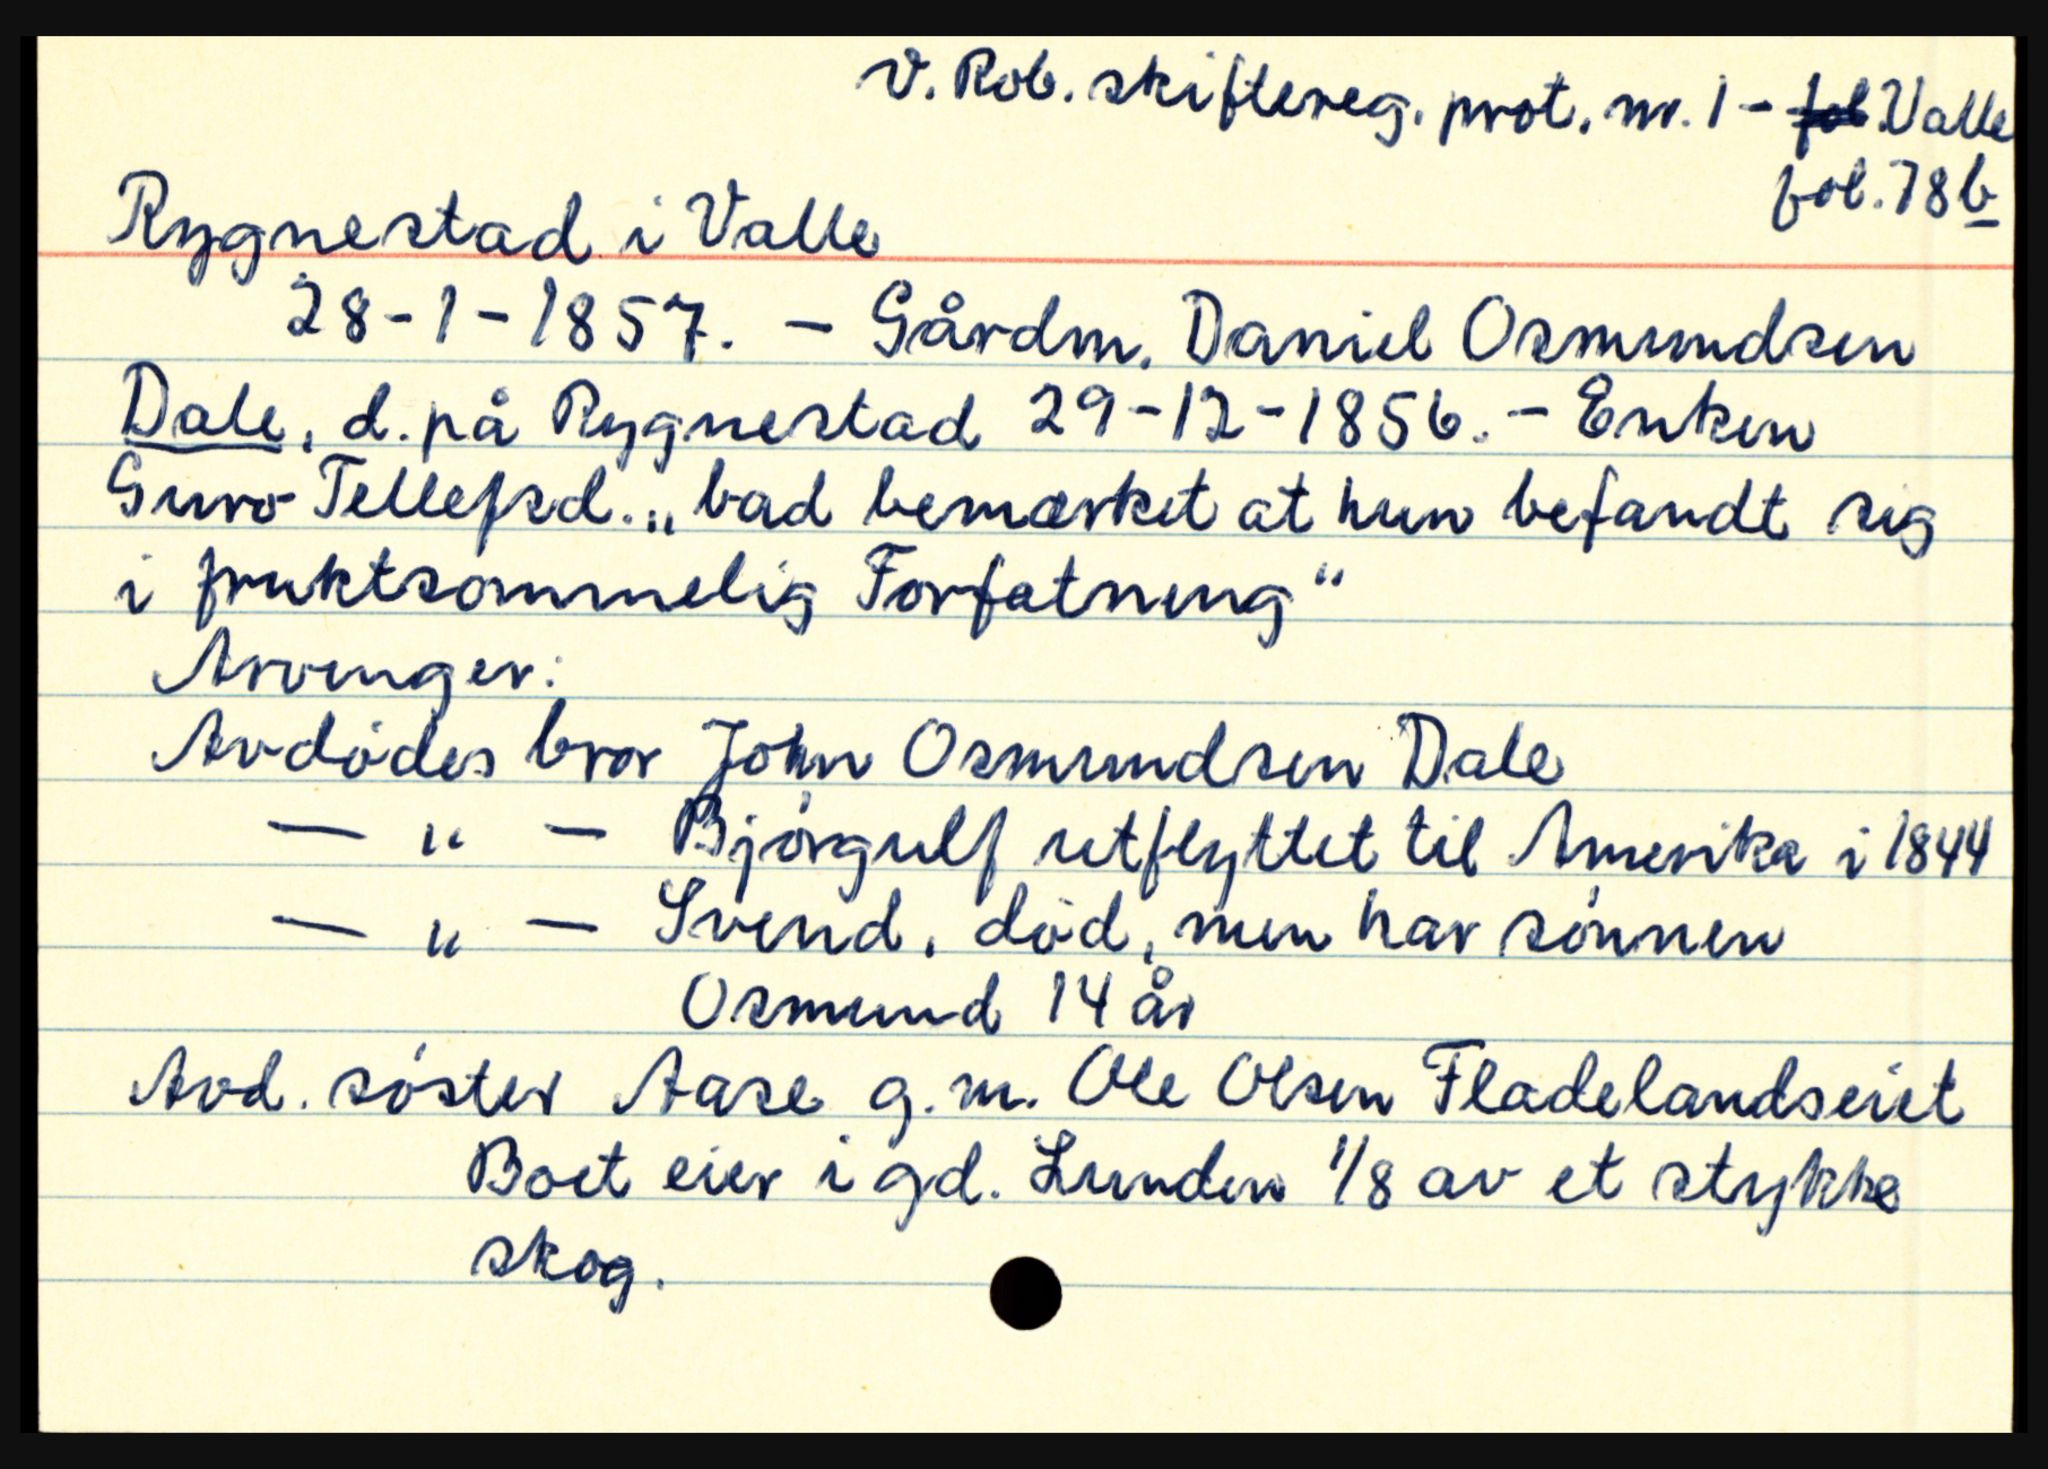 V. Rob. skiftereg. prot. nr. 1 - fol. Valle
fol. 78b
Rygnestad i Valle
28-1-1857. - Gårdm. Daniel Osmundsen
Dale, d. på Rygnestad 29-12-1856. - Enken
Guro Tellefsd. „bad bemærket at hun befandt sig
i fruktsommelig Forfatning"
Arvinger:
Avdødes bror John Osmundsen Dale
— „ — Bjørgulf utflyttet til Amerika i 1844
— „ — Svend, død, men har sønnen
Osmund 14 år
Avd. søster Aase g.m. Ole Olsen Fladelandseiet
Boet eier i gd. Lunden 1/8 av et stykke
skog.